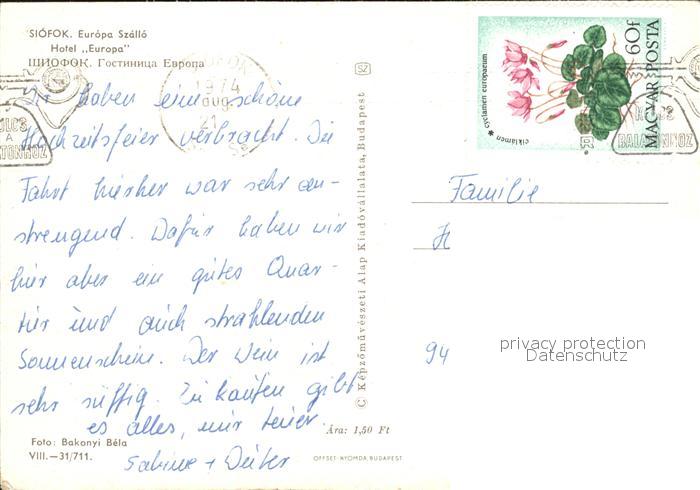 SIÓFOK. Európa Szálló
Hotel „Europa"
ШИОФОК. Гостиница Европа
haben eine schöne
Hochzeitsfeier verbracht. Die
Fahrt hierher war sehr an-
strengend. Dafür haben wir
hier aber ein gutes Quar-
tier und auch strahlenden
Sonnenschein. Der Wein ist
sehr süffig. Zu kaufen gibt
es alles, nur teuer.
Sabine + Dieter
Foto: Bakonyi Béla
VIII.—31/711.
Ára: 1,50 Ft
OFFSET-NYOMDA, BUDAPEST
© Képzőművészeti Alap Kiadóvállalata, Budapest
SZ
1974
AUG
21
* cyclamen europaeum
ciklámen *
60f
MAGYAR POSTA
BALATONHOZ
Familie
H
94
privacy protection
Datenschutz